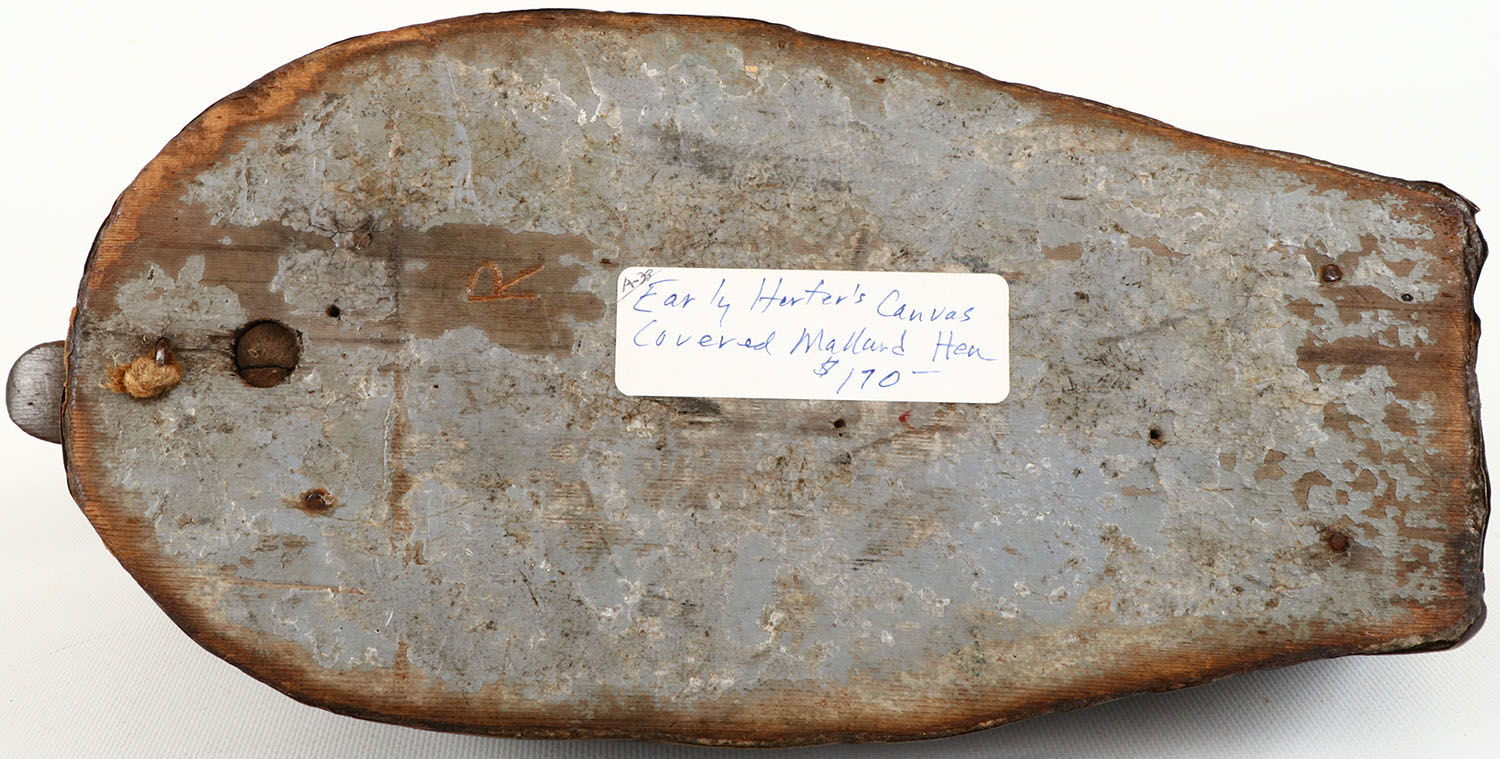 R
A-33
Early Herter's Canvas
Covered Mallard Hen
$170-